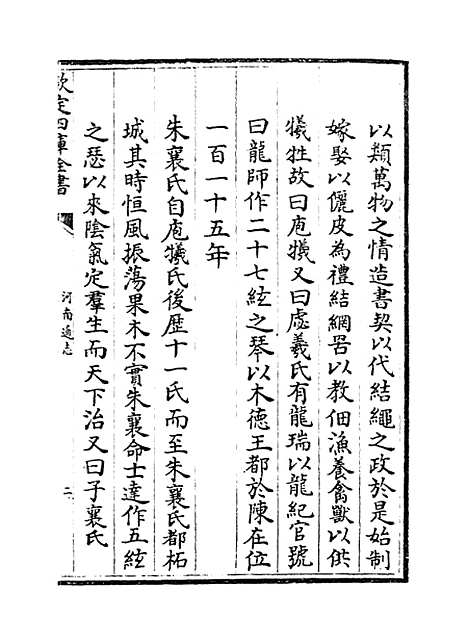 以類萬物之情造書契以代結繩之政於是始制
嫁娶以儷皮為禮結網罟以教佃漁養禽獸以供
犧牲故曰庖犧又曰虙羲氏有龍瑞以龍紀官號
曰龍師作二十七絃之琴以木德王都於陳在位
一百一十五年
朱襄氏自庖犧氏後歴十一氏而至朱襄氏都柘
城其時恒風振蕩果木不實朱襄命士達作五絃
之瑟以來陰氣定羣生而天下治又曰子襄氏
欽定四庫全書
河南通志
二